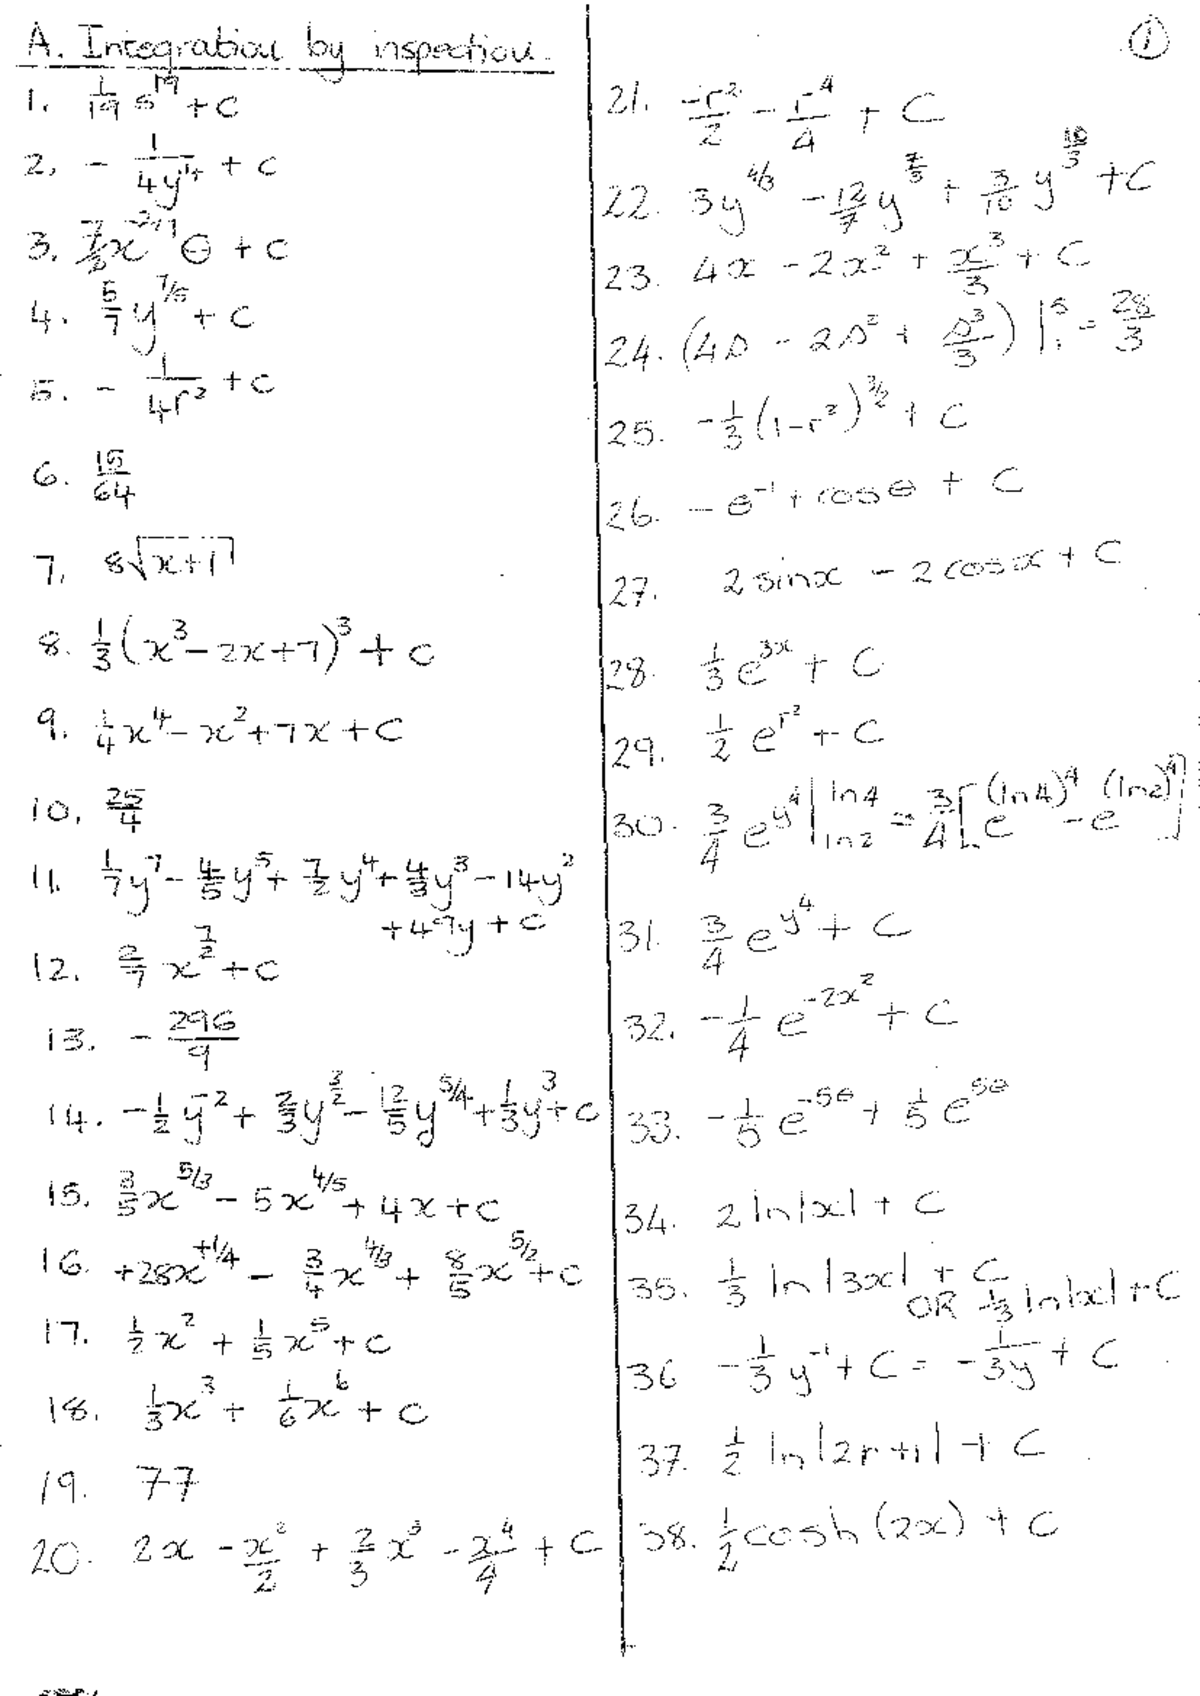 A. Integration by inspection.
①
1. 1/19 s^19 + c
2. - 1/(4y^4) + c
3. x θ + c
4. 5/7 y^(7/5) + c
5. - 1/(4r^2) + c
6. 15/64
7. 8√(x+1)
8. 1/3 (x^3 - 2x + 7)^3 + c
9. 1/4 x^4 - x^2 + 7x + c
10. 25/4
11. 1/7 y^7 - 4/5 y^5 + 7/2 y^4 + 4/3 y^3 - 14y^2
+ 49y + c
12. 2/7 x^(7/2) + c
13. - 296/9
14. -1/2 y^-2 + 2/3 y^(3/2) - 12/5 y^(5/4) + 1/3 y^3 + c
15. 3/5 x^(5/3) - 5x^(4/5) + 4x + c
16. +28x^(+1/4) - 3/4 x^(4/3) + 8/5 x^(5/2) + c
17. 1/2 x^2 + 1/5 x^5 + c
18. 1/3 x^3 + 1/6 x^6 + c
19. 77
20. 2x - x^2/2 + 2/3 x^3 - x^4/4 + C
21. -r^2/2 - r^4/4 + C
22. 3y^(4/3) - 12/7 y^(7/3) + 3/10 y^(10/3) + C
23. 4x - 2x^2 + x^3/3 + C
24. (4s - 2s^2 + s^3/3) |_1^5 = 28/3
25. -1/3 (1-r^2)^(3/2) + C
26. - θ^-1 + cosθ + C
27. 2 sinx - 2 cosx + C
28. 1/3 e^(3x) + C
29. 1/2 e^(r^2) + C
30. 3/4 e^(y^4) |_(ln2)^(ln4) = 3/4 [e^((ln4)^4) - e^((ln2)^4)]
31. 3/4 e^(y^4) + C
32. -1/4 e^(-2x^2) + C
33. -1/5 e^(-5θ) + 1/5 e^(5θ)
34. 2 ln|x| + C
35. 1/3 ln|3x| + C
OR 1/3 ln|x| + C
36 -1/3 y^-1 + C = - 1/(3y) + C
37. 1/2 ln|2r+1| + C
38. 1/2 cosh(2x) + C